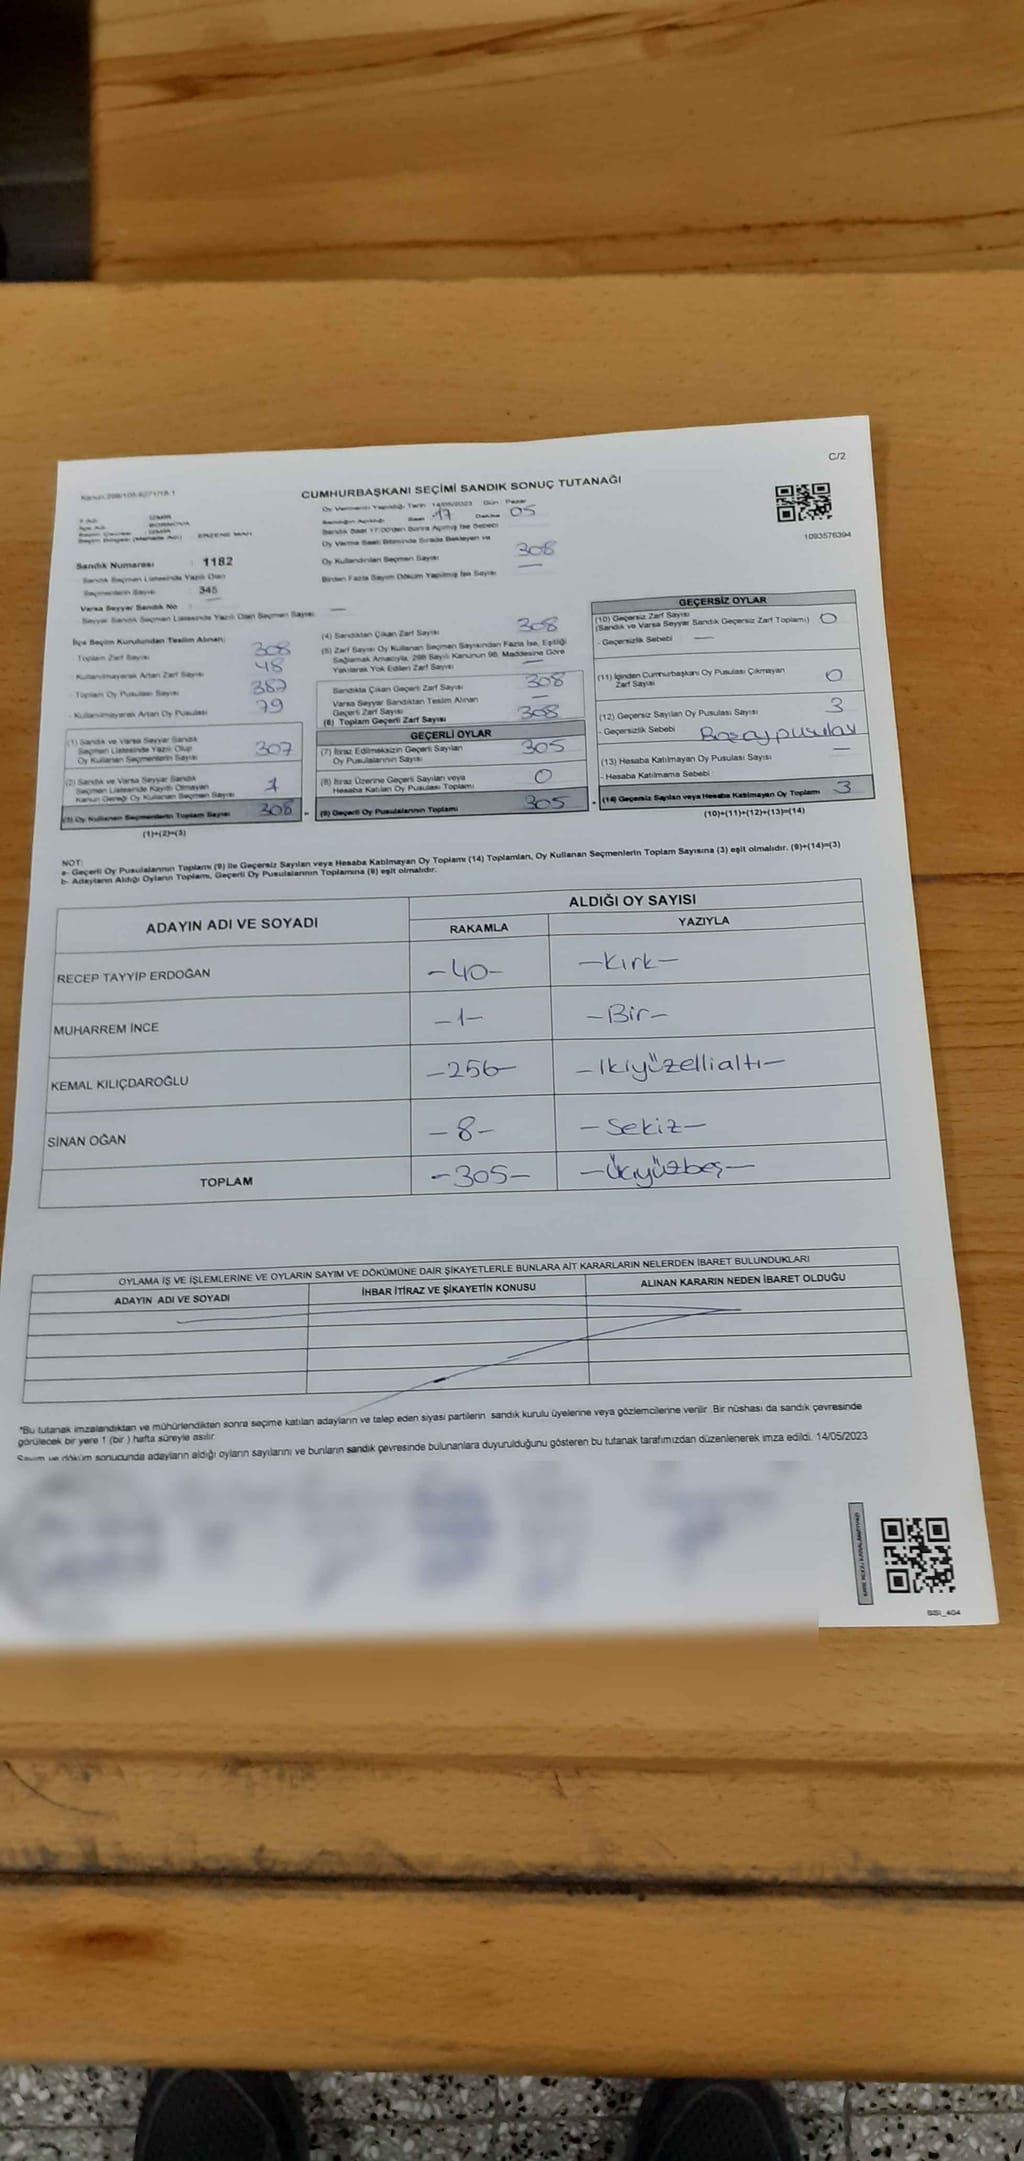 C/2
CUMHURBAŞKANI SEÇİMİ SANDIK SONUÇ TUTANAĞI
Oy Vermenin Yapıldığı Tarih 14/05/2023 Gün Pazar
Sandığın Açıldığı Saat 17 Dakika 05
Sandık Saat 17.00'den Sonra Açılmış İse Sebebi
Oy Verme Saati Bitiminde Sırada Bekleyen ve
Oy Kullandırılan Seçmen Sayısı 308
Birden Fazla Sayım Döküm Yapılmış İse Sayısı —
1093576394
İZMİR
BORNOVA
İZMİR
ERZENE MAH
Sandık Numarası : 1182
Sandık Seçmen Listesinde Yazılı Olan
Seçmenlerin Sayısı 345
Varsa Seyyar Sandık No
Seyyar Sandık Seçmen Listesinde Yazılı Olan Seçmen Sayısı —
İlçe Seçim Kurulundan Teslim Alınan;
- Toplam Zarf Sayısı 308
- Kullanılmayarak Artan Zarf Sayısı 48
- Toplam Oy Pusulası Sayısı 387
- Kullanılmayarak Artan Oy Pusulası 79
(1) Sandık ve Varsa Seyyar Sandık
Seçmen Listesinde Yazılı Olup
Oy Kullanan Seçmenlerin Sayısı 307
(2) Sandık ve Varsa Seyyar Sandık
Seçmen Listesinde Kayıtlı Olmayan
Kanun Gereği Oy Kullanan Seçmen Sayısı 1
(3) Oy Kullanan Seçmenlerin Toplam Sayısı 308
(1)+(2)=(3)
(4) Sandıktan Çıkan Zarf Sayısı 308
(5) Zarf Sayısı Oy Kullanan Seçmen Sayısından Fazla İse, Eşitliği
Sağlamak Amacıyla, 298 Sayılı Kanunun 98. Maddesine Göre
Yakılarak Yok Edilen Zarf Sayısı —
Sandıkta Çıkan Geçerli Zarf Sayısı 308
Varsa Seyyar Sandıktan Teslim Alınan
Geçerli Zarf Sayısı —
(6) Toplam Geçerli Zarf Sayısı 308
GEÇERLİ OYLAR
(7) İtiraz Edilmeksizin Geçerli Sayılan
Oy Pusulalarının Sayısı 305
(8) İtiraz Üzerine Geçerli Sayılan veya
Hesaba Katılan Oy Pusulası Toplamı 0
(9) Geçerli Oy Pusulalarının Toplamı 305
GEÇERSİZ OYLAR
(10) Geçersiz Zarf Sayısı
(Sandık ve Varsa Seyyar Sandık Geçersiz Zarf Toplamı) 0
- Geçersizlik Sebebi —
(11) İçinden Cumhurbaşkanı Oy Pusulası Çıkmayan
Zarf Sayısı 0
(12) Geçersiz Sayılan Oy Pusulası Sayısı 3
- Geçersizlik Sebebi
(13) Hesaba Katılmayan Oy Pusulası Sayısı —
- Hesaba Katılmama Sebebi
(14) Geçersiz Sayılan veya Hesaba Katılmayan Oy Toplamı 3
(10)+(11)+(12)+(13)=(14)
NOT:
a- Geçerli Oy Pusulalarının Toplamı (9) ile Geçersiz Sayılan veya Hesaba Katılmayan Oy Toplamı (14) Toplamları, Oy Kullanan Seçmenlerin Toplam Sayısına (3) eşit olmalıdır. (9)+(14)=(3)
b- Adayların Aldığı Oyların Toplamı, Geçerli Oy Pusulalarının Toplamına (9) eşit olmalıdır.
ADAYIN ADI VE SOYADI
ALDIĞI OY SAYISI
RAKAMLA YAZIYLA
RECEP TAYYİP ERDOĞAN -40- -Kırk-
MUHARREM İNCE -1- -Bir-
KEMAL KILIÇDAROĞLU -256- -İkiyüzellialtı-
SİNAN OĞAN -8- -Sekiz-
TOPLAM -305- -Üçyüzbeş-
OYLAMA İŞ VE İŞLEMLERİNE VE OYLARIN SAYIM VE DÖKÜMÜNE DAİR ŞİKAYETLERLE BUNLARA AİT KARARLARIN NELERDEN İBARET BULUNDUKLARI
ADAYIN ADI VE SOYADI İHBAR İTİRAZ VE ŞİKAYETİN KONUSU ALINAN KARARIN NEDEN İBARET OLDUĞU
*Bu tutanak imzalandıktan ve mühürlendikten sonra seçime katılan adayların ve talep eden siyasi partilerin sandık kurulu üyelerine veya gözlemcilerine verilir. Bir nüshası da sandık çevresinde
görülecek bir yere 1 (bir) hafta süreyle asılır.
Sayım ve döküm sonucunda adayların aldığı oyların sayılarını ve bunların sandık çevresinde bulunanlara duyurulduğunu gösteren bu tutanak tarafımızdan düzenlenerek imza edildi. 14/05/2023